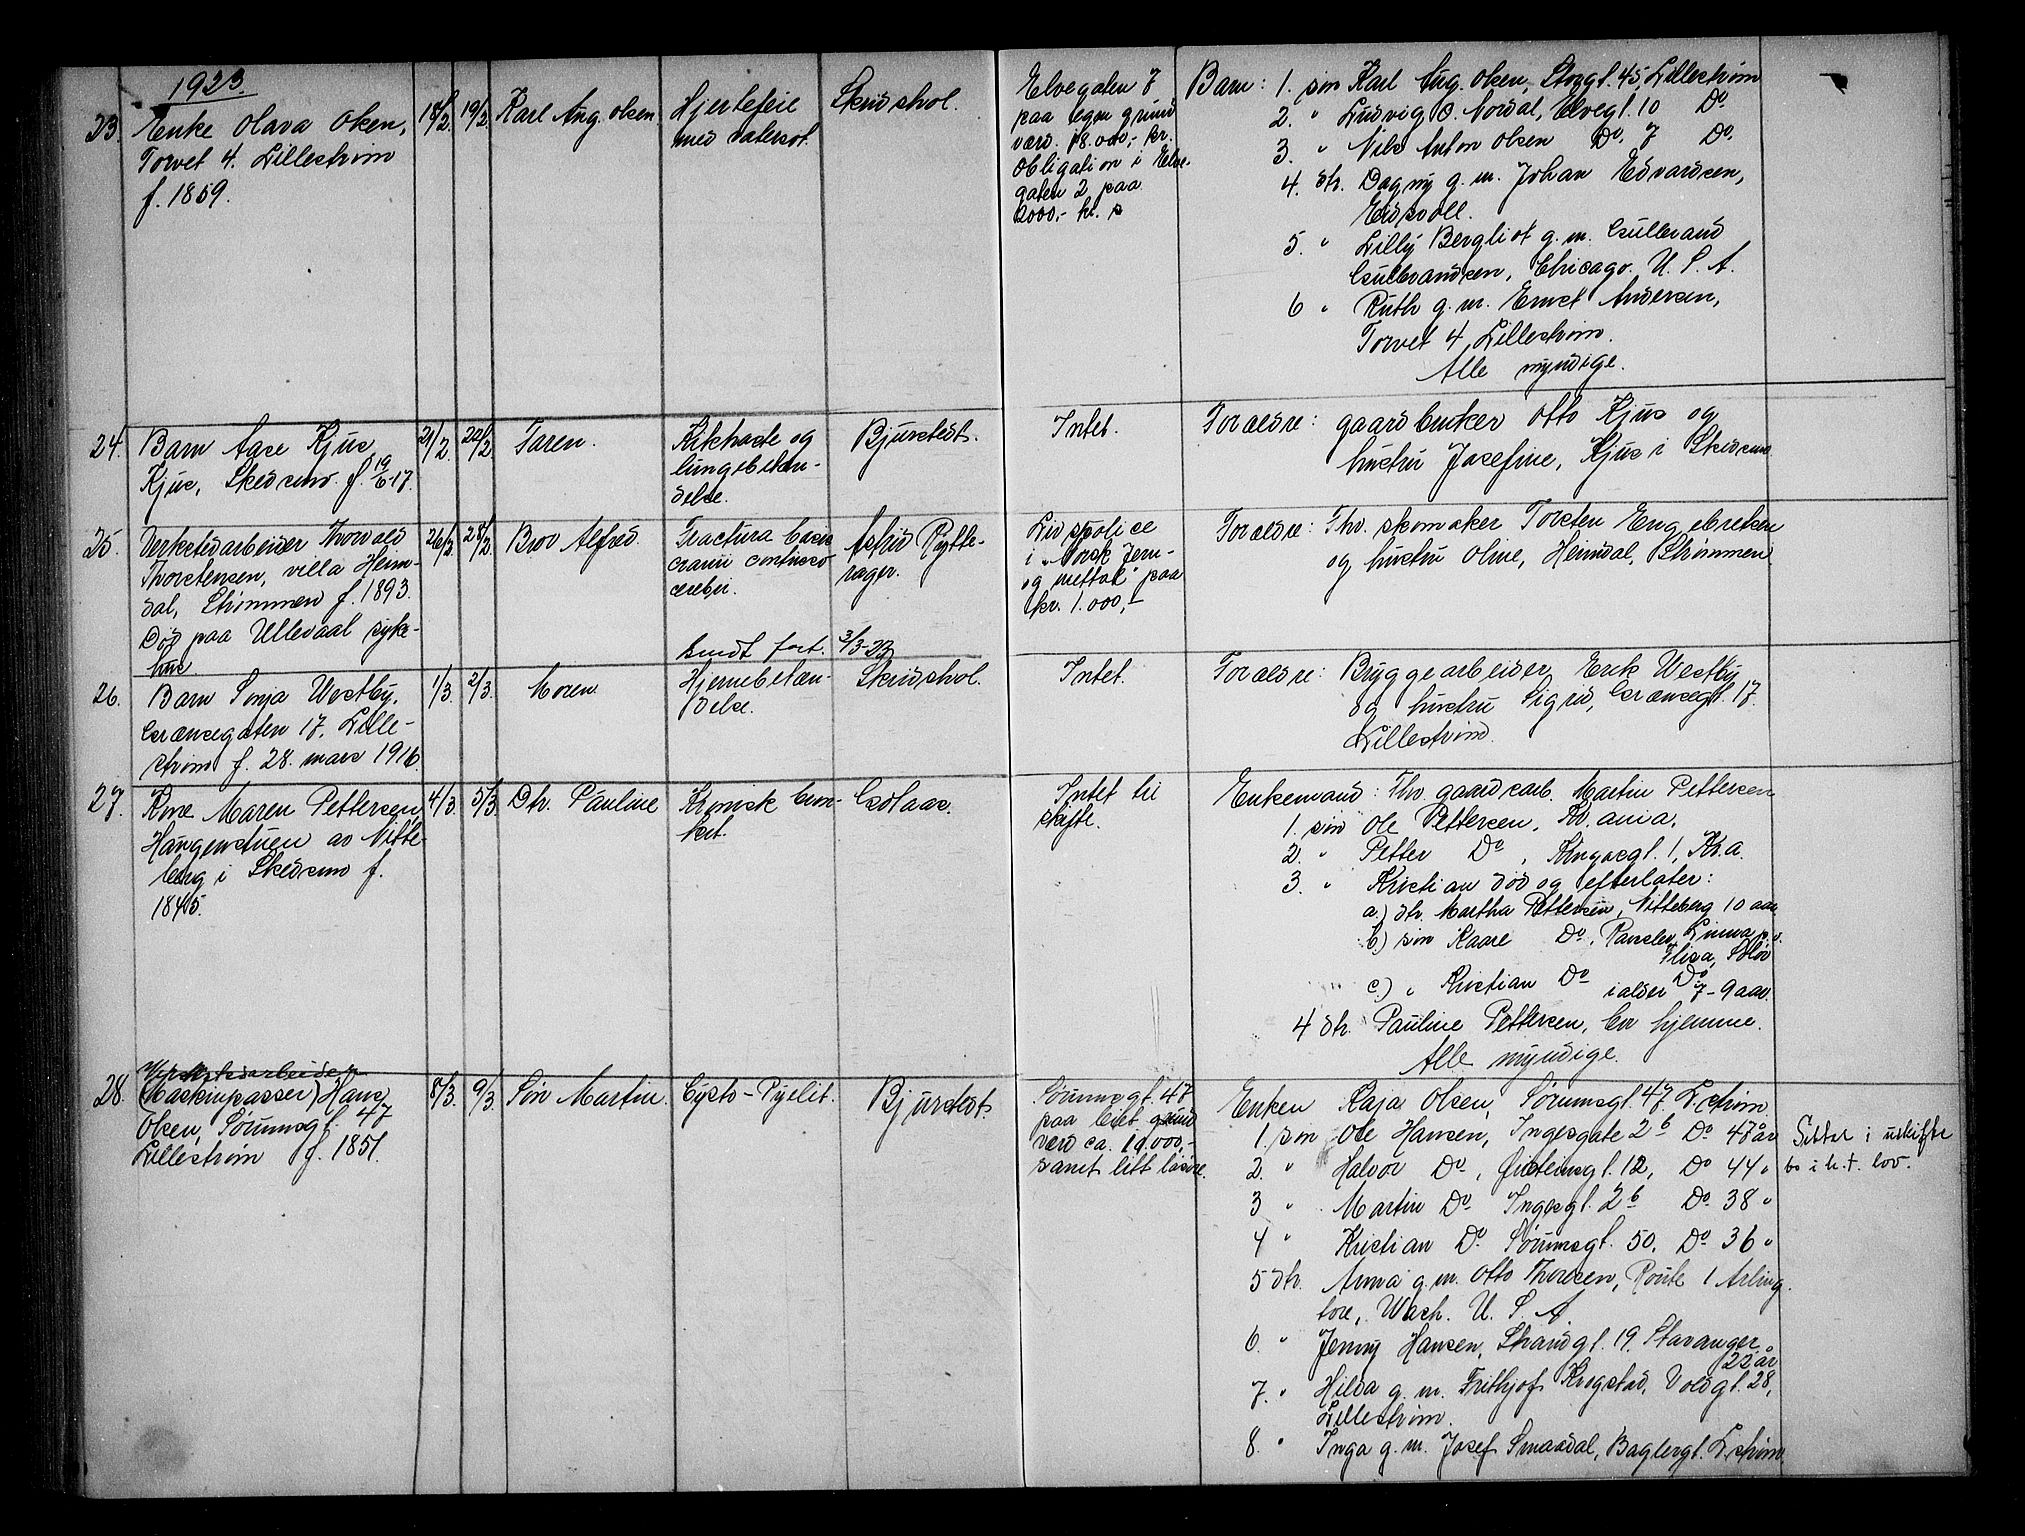 1923.
23. Enke Olava Olsen, 18/2. 19/2 Karl Aug. Olsen. Hjertefeil Skridshol. Elvegaten 7 Barn: 1. søn Karl Aug. Olsen, Storgt. 45, Lillestrøm
Torvet 4. Lillestrøm med vatersot. paa egen grund 2. " Ludvig O. Nordal, Elvegt. 10 Do
f. 1859. værd. 18.000,- kr. 3. " Nils Anton Olsen Do. 7 Do.
Obligation i Elve- 4. dtr. Dagny g. m. Johan Edvardsen,
gaten 2 paa Eidsvoll.
2000,- kr. 5 " Lilly Bergliot g. m. Gulbrand
Gulbrandsen, Chicago. U. S. A.
6 " Ruth g. m. Ernst Andersen,
Torvet 4, Lillestrøm.
Alle myndige.
24. Barn Aase Kjus 21/2. 22/2 Faren. Kikhoste og Bjurstedt. Intet. Forældre: gaardbruker Otto Kjus og
Kjus, Skedsmo. f. 19/6-17. lungebetæn- hustru Josefine, Kjus i Skedsmo
delse.
25. Verkstedarbeider Thorvald 26/2. 28/2 Bror Alfred. Fractura basis Astrid Rytte- Livspolice Forældre: Fhv. skomaker Torsten Engebretsen
Thorstensen, villa Heim- cranii contusio rager. i "Norsk Jern- og hustru Oline, Heimdal, Strømmen
dal, Strømmen f. 1893. cerebri. og mettal" paa
Død paa Ullevaal syke- kr. 1.000,-
hus sendt fort. 3/3-23
26. Barn Sonja Westby, 1/3. 2/3. Moren Hjernebetæn- Skridshol. Intet. Forældre: Bryggearbeider Erik Westby
Grænsegaten 17. Lille- delse. og hustru Sigrid, Grænsegt. 17.
strøm f. 28. mars 1916. Lillestrøm.
27. Kone Maren Pettersen, 4/3. 5/3. Dtr. Pauline Kronisk bron- Golaas. Intet til Enkemand: Fhv. gaardsarb. Martin Pettersen
Haugenstuen av Nitte- kit. skifte. 1. søn Ole Pettersen, Kr.ania.
berg i Skedsmo f. 2. " Petter Do, Kingosgt. 1, Kr.a.
1845. 3. " Kristian død og efterlater:
a) dtr. Martha Pettersen, Nitteberg 10 aar
b) søn Kaare Do, Linna p.
Flisa, Solør
c) " Kristian Do Do i alder 7-9 aar.
4 dtr. Pauline Pettersen, bor hjemme.
Alle myndige.
Verkstedarbeider
28. (Maskinpasser) Hans 8/3. 9/3. Søn Martin. Cysto-Pyelit. Bjurstedt. Sørumsgt. 47 Enken Kaja Olsen, Sørumsgt. 47. L.strøm
Olsen, Sørumsgt. 47 paa leiet grund 1. søn Ole Hansen, Ingesgate 2b Do 47 år Sitter i uskifte
Lillestrøm f. 1851. værd ca. 10.000,- 2. " Halvor Do, Øisteinsgt. 12, Do 44 " bo i h. t. lov.
samt litt løsøre. 3 " Martin Do Ingesgt. 2b Do 38 "
4 " Kristian Do. Sørumsgt. 50. Do 36 "
5 dtr. Anna g. m. Otto Thoresen, Route 1 Arling
tore, Wash. U. S. A.
6. " Jenny Hansen, Strandgt. 19. Stavanger.
22 år
7. " Hilda g. m. Frithjof Krogstad, Voldgt. 28,
Lillestrøm.
8. " Inga g. m. Josef Smaadal, Baglergt. L.strøm